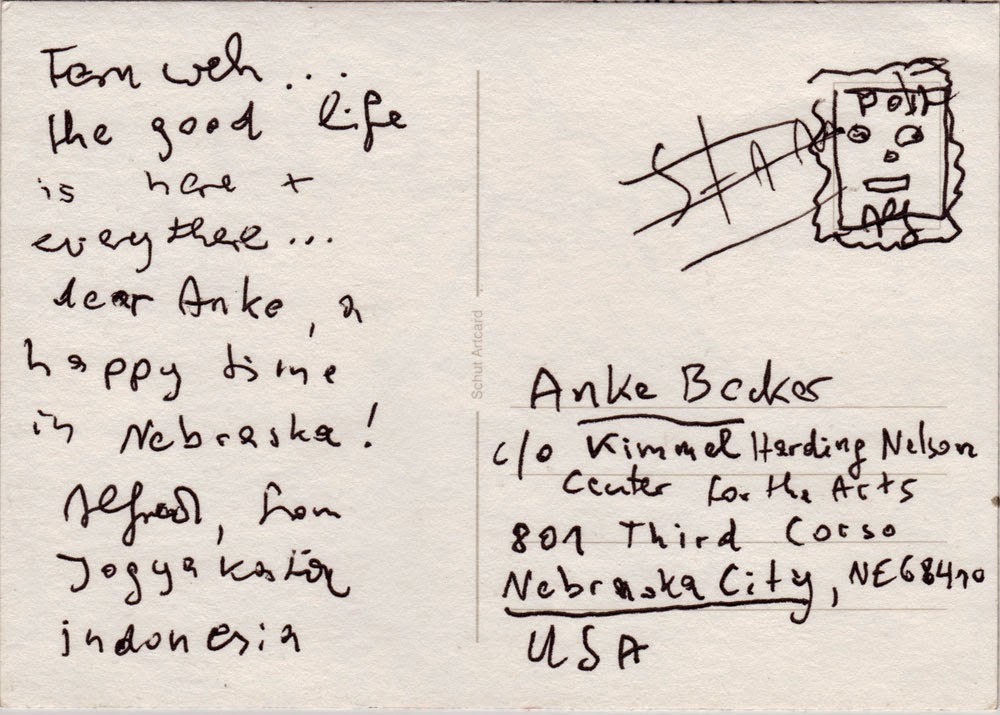 Fern weh...
the good life
is here +
everythere...
dear Anke, a
happy time
in Nebraska!
Alfred, from
Jogyakarta
indonesia
Schut Artcard
Anke Becker
c/o Kimmel Harding Nelson
Center for the Arts
801 Third Corso
Nebraska City, NE68410
USA